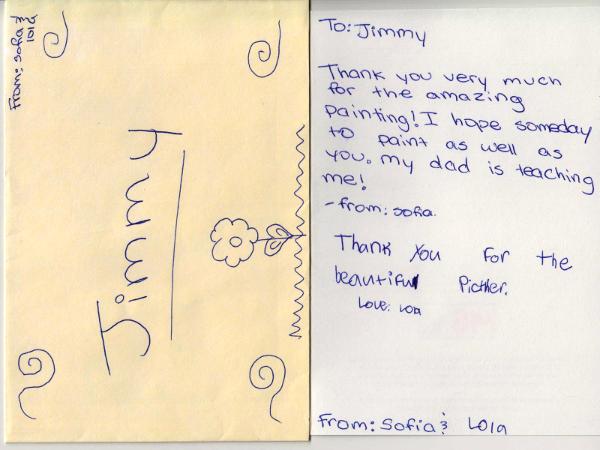 From: Sofia &
lola
Jimmy
To: Jimmy
Thank you very much
for the amazing
painting! I hope someday
to paint as well as
you. my dad is teaching
me!
-from: sofia.
Thank you for the
beautiful Picther.
Love: lola
From: Sofia & Lola